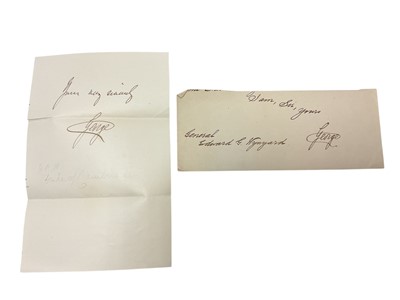 Yours very sincerely
George
I am, Sir,
Yours
General
Edward G. Wynyard
George